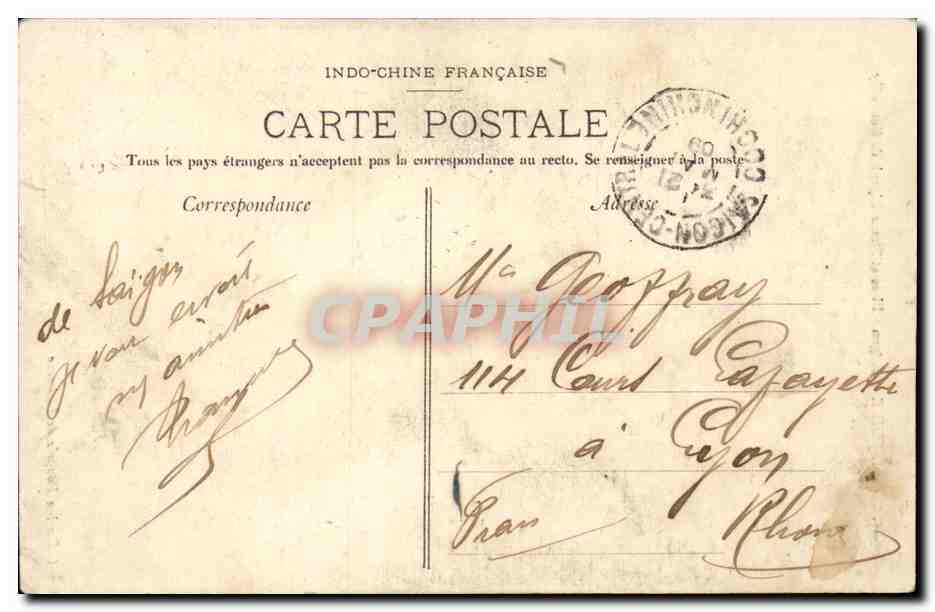 INDO-CHINE FRANÇAISE
CARTE POSTALE
Tous les pays étrangers n'acceptent pas la correspondance au recto. Se renseigner à la poste
Correspondance
Adresse
SAIGON-CENTRAL COCHINCHINE
09
de Saïgon
je vous envois
mes
Mr Geoffray
114 Cours Lafayette
à Lyon
Rhone
CPAPHIL